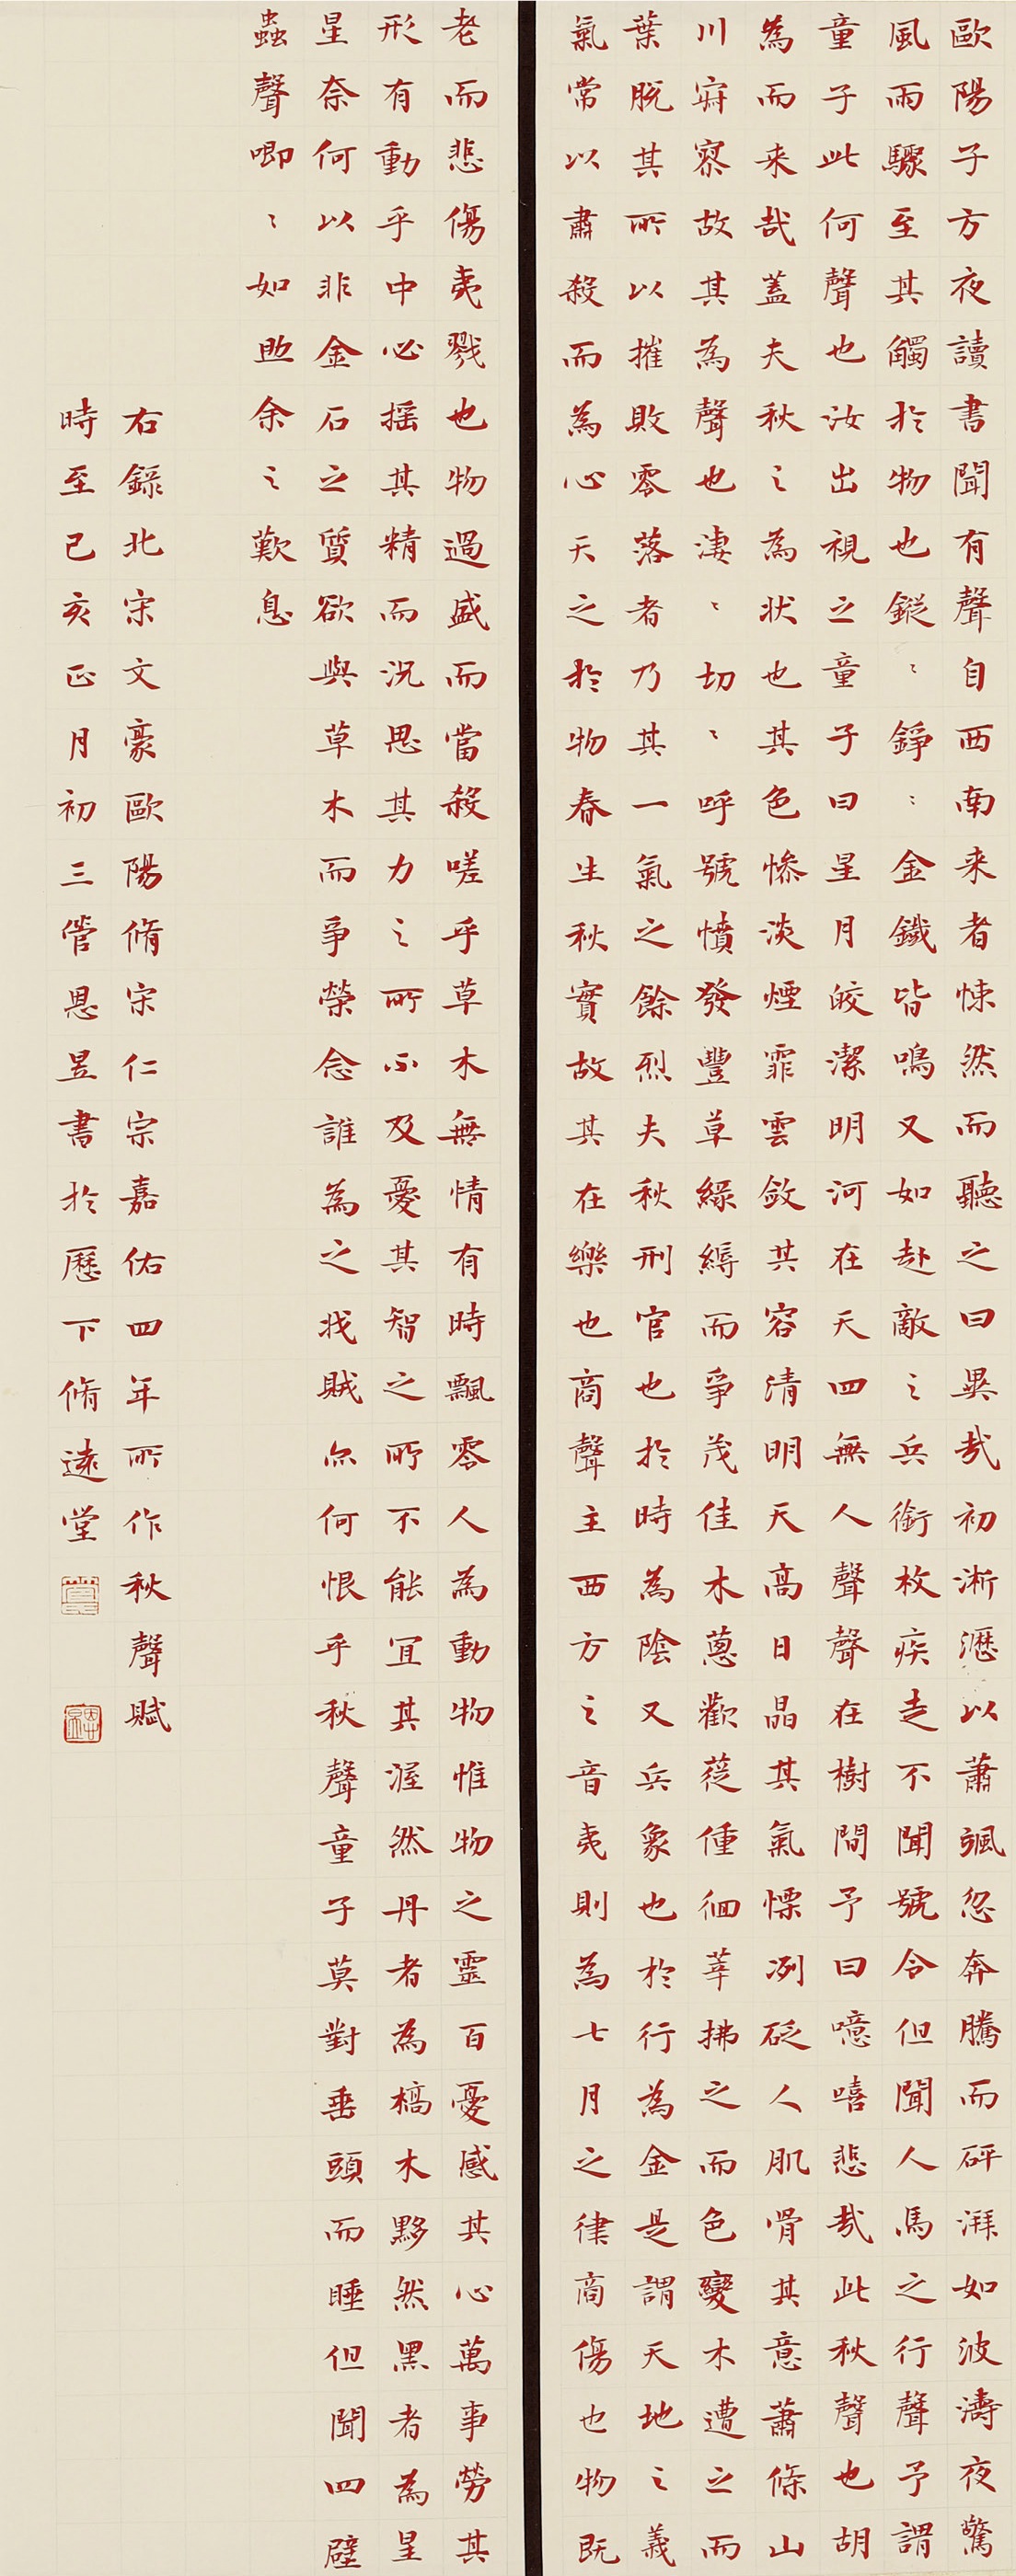 歐陽子方夜讀書聞有聲自西南来者悚然而聽之曰異哉初淅瀝以蕭颯忽奔騰而砰湃如波濤夜驚
風雨驟至其觸於物也鏦〻錚〻金鐵皆鳴又如赴敵之兵銜枚疾走不聞號令但聞人馬之行聲予謂
童子此何聲也汝出視之童子曰星月皎潔明河在天四無人聲聲在樹間予曰噫嘻悲哉此秋聲也胡
為而来哉蓋夫秋之為狀也其色慘淡煙霏雲斂其容清明天高日晶其氣慄冽砭人肌骨其意蕭條山
川寂寥故其為聲也淒〻切〻呼號憤發豐草綠縟而爭茂佳木蔥拂之而色變木遭之而
葉脫其所以摧敗零落者乃其一氣之餘烈夫秋刑官也於時為陰又兵象也於行為金是謂天地之義
氣常以肅殺而為心天之於物春生秋實故其在樂也商聲主西方之音夷則為七月之律商傷也物既
老而悲傷夷戮也物過盛而當殺嗟乎草木無情有時飄零人為動物惟物之靈百憂感其心萬事勞其
形有動乎中必搖其精而況思其力之所不及憂其智之所不能宜其渥然丹者為槁木黟然黑者為星
星奈何以非金石之質欲與草木而爭榮念誰為之戕賊亦何恨乎秋聲童子莫對垂頭而睡但聞四壁
蟲聲唧〻如助余之歎息
右錄北宋文豪歐陽脩宋仁宗嘉佑四年所作秋聲賦
時至己亥正月初三管恩昱書於歷下脩遠堂